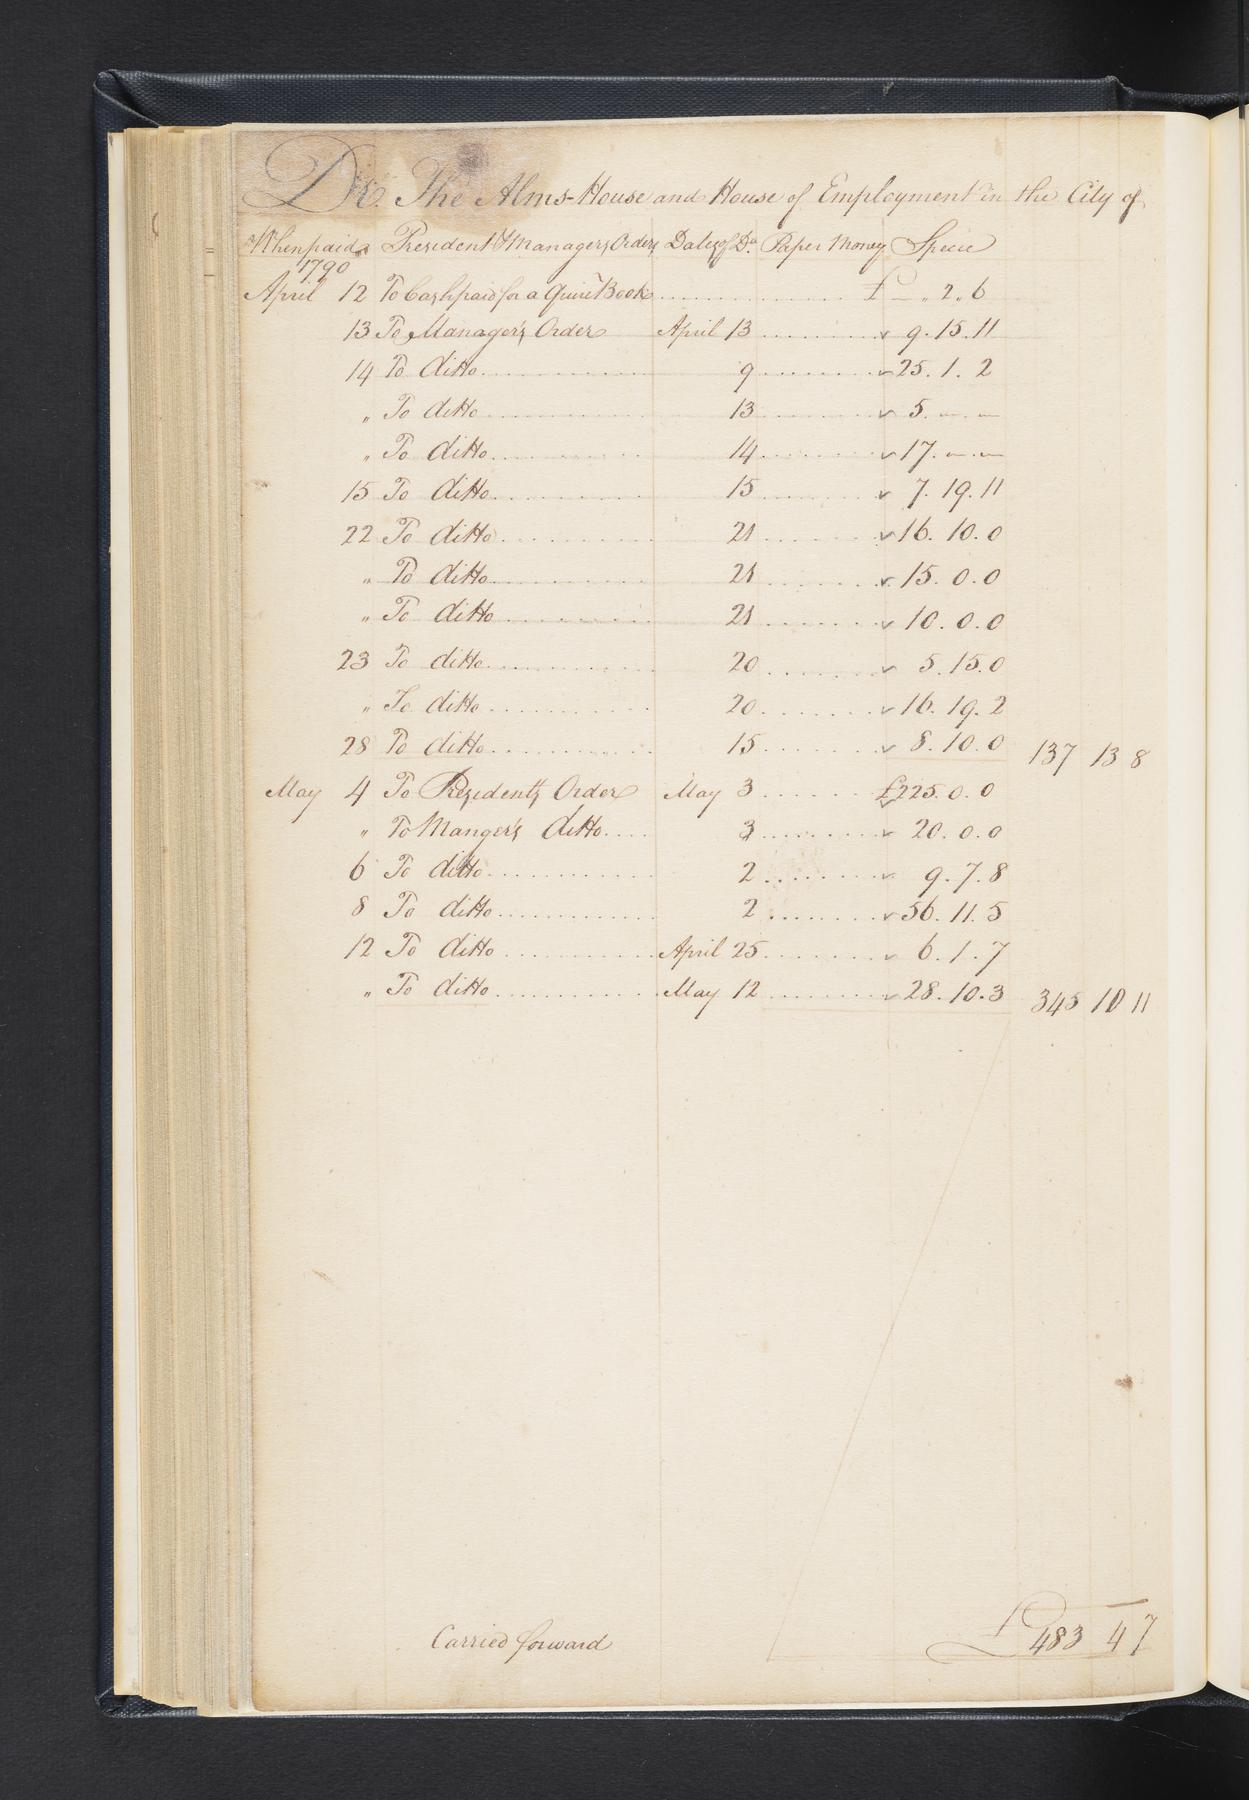 Dr. The Alms-House and House of Employment in the City of
When paid President & Managers Orders Dates of Do. Paper Money Specie
1790
April 12 To Cash paid for a Quire Book £ — „ 2 „ 6
13 To Manager's Order April 13 9. 15. 11
14 To ditto 9 25. 1. 2
„ To ditto 13 5. — . —
„ To ditto 14 17. — . —
15 To ditto 15 7. 19. 11
22 To ditto 21 16. 10. 0
„ To ditto 21 15. 0. 0
„ To ditto 21 10. 0. 0
23 To ditto 20 5. 15. 0
„ To ditto 20 16. 19. 2
28 To ditto 15 8. 10. 0 137 13 8
May 4 To President's Order May 3 £225. 0. 0
„ To Manger's ditto 3 20. 0. 0
6 To ditto 2 9. 7. 8
8 To ditto 2 56. 11. 5
12 To ditto April 25 6. 1. 7
„ To ditto May 12 28. 10. 3 345 10 11
Carried forward £ 483 4 7